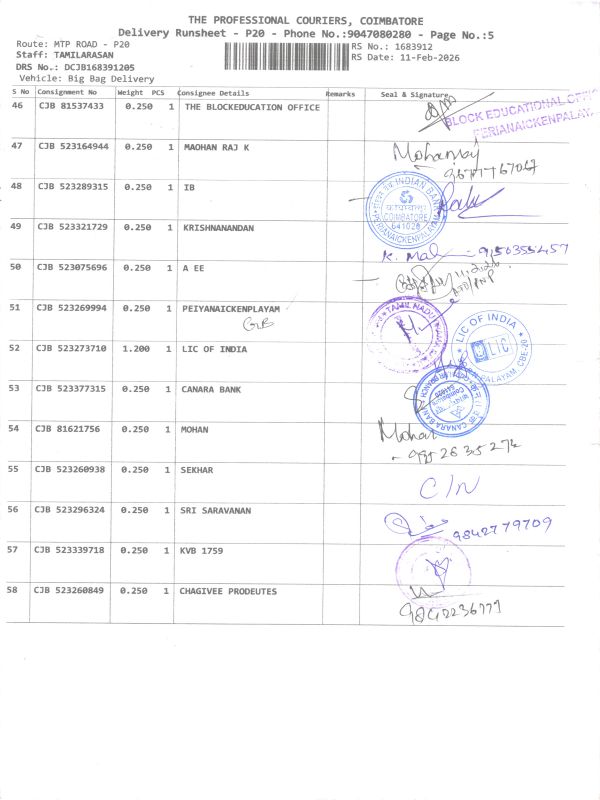 THE PROFESSIONAL COURIERS, COIMBATORE
Delivery Runsheet - P20 - Phone No.:9047080280 - Page No.:5
Route: MTP ROAD - P20
RS No.: 1683912
Staff: TAMILARASAN
RS Date: 11-Feb-2026
DRS No.: DCJB168391205
Vehicle: Big Bag Delivery
S No Consignment No Weight PCS Consignee Details Remarks Seal & Signature
46 CJB 81537433 0.250 1 THE BLOCKEDUCATION OFFICE
BLOCK EDUCATIONAL
PERIANAICKENPALAY
47 CJB 523164944 0.250 1 MAOHAN RAJ K Mohanraj
48 CJB 523289315 0.250 1 IB
INDIAN BANK
COIMBATORE
641020
PERIANAICKENPALAYAM
49 CJB 523321729 0.250 1 KRISHNANANDAN
50 CJB 523075696 0.250 1 A EE
51 CJB 523269994 0.250 1 PEIYANAICKENPLAYAM
TAMIL NADU
52 CJB 523273710 1.200 1 LIC OF INDIA
LIC OF INDIA
LIC
CBE-20
53 CJB 523377315 0.250 1 CANARA BANK
CANARA BANK
54 CJB 81621756 0.250 1 MOHAN Mohan
55 CJB 523260938 0.250 1 SEKHAR C/N
56 CJB 523296324 0.250 1 SRI SARAVANAN 9842779709
57 CJB 523339718 0.250 1 KVB 1759
58 CJB 523260849 0.250 1 CHAGIVEE PRODEUTES